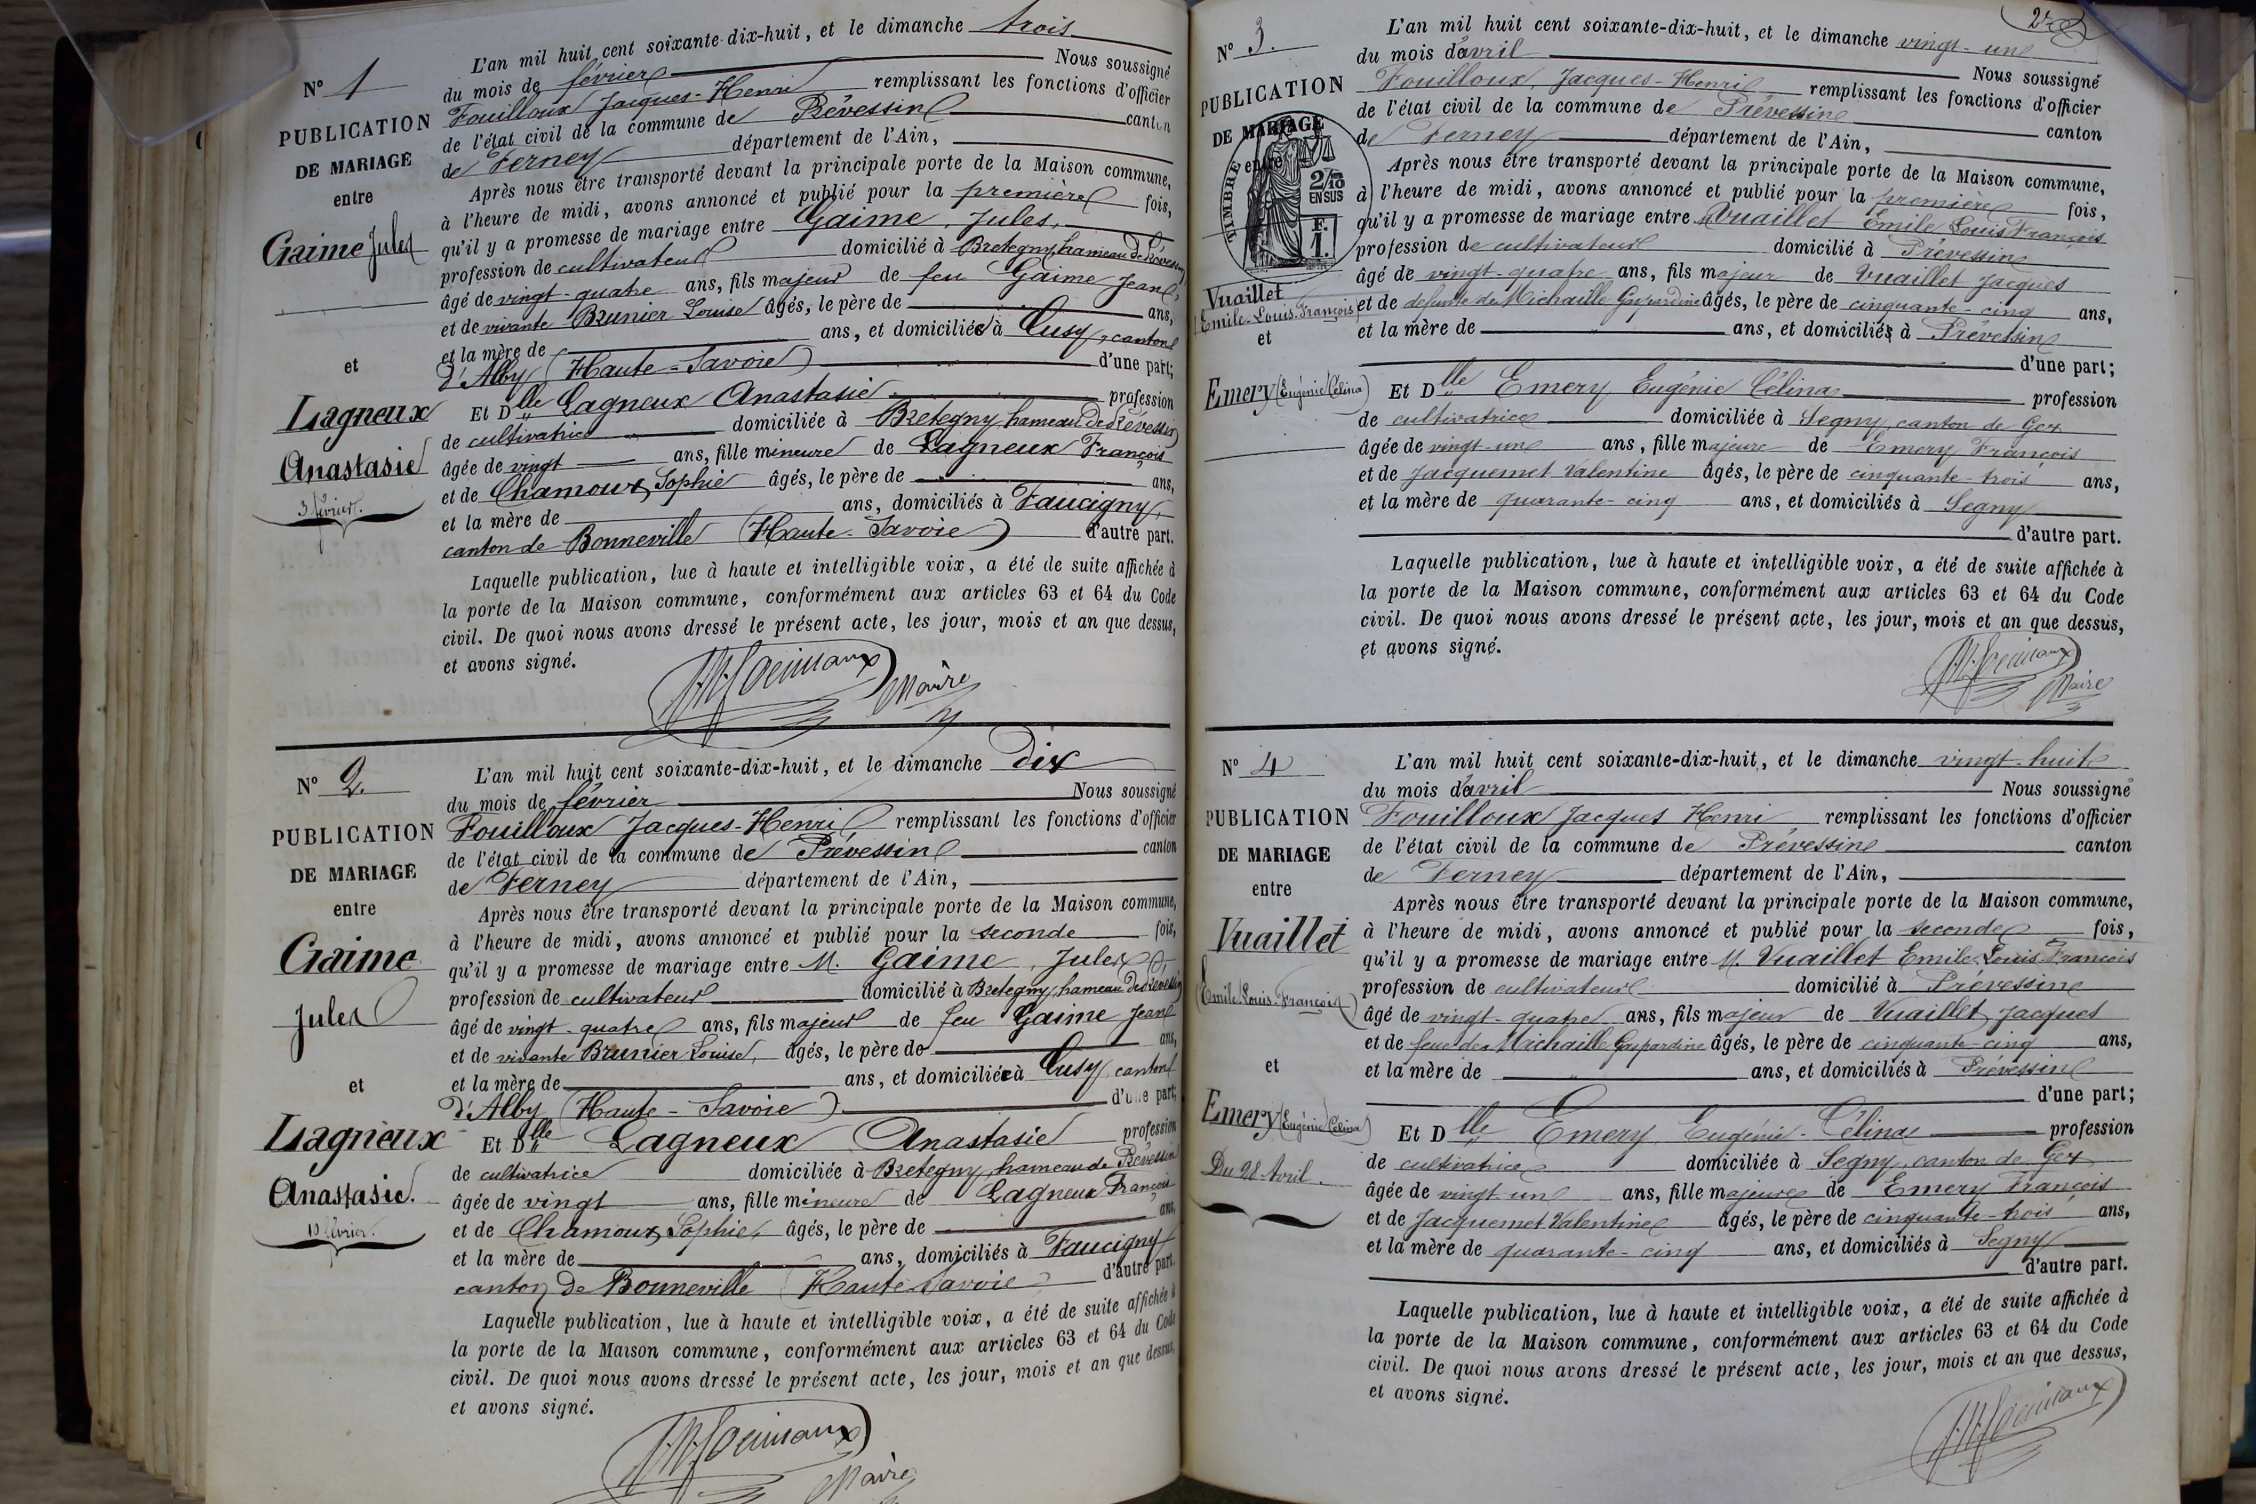 N° 1
PUBLICATION
DE MARIAGE
entre
Gaime Jules
et
Lagneux
Anastasie
3 février.
L'an mil huit cent soixante-dix-huit, et le dimanche trois
du mois de février Nous soussigné
Fouilloux Jacques-Henri remplissant les fonctions d'officier
de l'état civil de la commune de Prévessin canton
de Ferney département de l'Ain,
Après nous être transporté devant la principale porte de la Maison commune,
à l'heure de midi, avons annoncé et publié pour la première fois,
qu'il y a promesse de mariage entre Gaime, Jules,
profession de cultivateur domicilié à Bretegny, hameau de Prévessin
âgé de vingt-quatre ans, fils majeur de feu Gaime Jean,
et de vivante Brunier Louise âgés, le père de ans,
et la mère de ans, et domiciliée à Cusy, canton
d'Alby (Haute-Savoie) d'une part;
Et Dlle Lagneux Anastasie profession
de cultivatrice domiciliée à Bretegny, hameau de Prévessin
âgée de vingt ans, fille mineure de Lagneux François
et de Chamoux Sophie âgés, le père de ans,
et la mère de ans, domiciliés à Faucigny,
canton de Bonneville (Haute-Savoie) d'autre part.
Laquelle publication, lue à haute et intelligible voix, a été de suite affichée à
la porte de la Maison commune, conformément aux articles 63 et 64 du Code
civil. De quoi nous avons dressé le présent acte, les jour, mois et an que dessus,
et avons signé.
Maire
N° 2.
PUBLICATION
DE MARIAGE
entre
Gaime
Jules
et
Lagneux
Anastasie.
10 février.
L'an mil huit cent soixante-dix-huit, et le dimanche Dix
du mois de février Nous soussigné
Fouilloux Jacques-Henri remplissant les fonctions d'officier
de l'état civil de la commune de Prévessin canton
de Ferney département de l'Ain,
Après nous être transporté devant la principale porte de la Maison commune,
à l'heure de midi, avons annoncé et publié pour la seconde fois,
qu'il y a promesse de mariage entre M. Gaime, Jules
profession de cultivateur domicilié à Bretegny, hameau de Prévessin
âgé de vingt-quatre ans, fils majeur de feu Gaime Jean
et de vivante Brunier Louise, âgés, le père de ans,
et la mère de ans, et domiciliée à Cusy, canton
d'Alby (Haute-Savoie) d'une part;
Et Dlle Lagneux Anastasie profession
de cultivatrice domiciliée à Bretegny, hameau de Prévessin
âgée de vingt ans, fille mineure de Lagneux François
et de Chamoux Sophie, âgés, le père de ans,
et la mère de ans, domiciliés à Faucigny
canton de Bonneville (Haute-Savoie) d'autre part.
Laquelle publication, lue à haute et intelligible voix, a été de suite affichée à
la porte de la Maison commune, conformément aux articles 63 et 64 du Code
civil. De quoi nous avons dressé le présent acte, les jour, mois et an que dessus,
et avons signé.
Maire
N° 3.
PUBLICATION
DE MARIAGE
entre
TIMBRE
2/10
EN SUS
F.
1.
Vuaillet
(Emile-Louis-François)
et
Emery (Eugénie Célina)
L'an mil huit cent soixante-dix-huit, et le dimanche vingt-un
du mois d'avril Nous soussigné
Fouilloux, Jacques-Henri remplissant les fonctions d'officier
de l'état civil de la commune de Prévessin
de Ferney département de l'Ain, canton
Après nous être transporté devant la principale porte de la Maison commune,
à l'heure de midi, avons annoncé et publié pour la première fois,
qu'il y a promesse de mariage entre M. Vuaillet Emile Louis François
profession de cultivateur domicilié à Prévessin
âgé de vingt-quatre ans, fils majeur de Vuaillet Jacques
et de défunte de Michaille Gaspardine âgés, le père de cinquante-cinq ans,
et la mère de ans, et domiciliés à Prévessin
d'une part;
Et Dlle Emery Eugénie Célina profession
de cultivatrice domiciliée à Segny, canton de Gex
âgée de vingt-un ans, fille majeure de Emery François
et de Jacquemet Valentine âgés, le père de cinquante-trois ans,
et la mère de quarante-cinq ans, et domiciliés à Segny
d'autre part.
Laquelle publication, lue à haute et intelligible voix, a été de suite affichée à
la porte de la Maison commune, conformément aux articles 63 et 64 du Code
civil. De quoi nous avons dressé le présent acte, les jour, mois et an que dessus,
et avons signé.
Maire
N° 4
PUBLICATION
DE MARIAGE
entre
Vuaillet
(Emile Louis-François)
et
Emery (Eugénie Célina)
Du 28 Avril.
L'an mil huit cent soixante-dix-huit, et le dimanche vingt-huit
du mois d'avril Nous soussigné
Fouilloux Jacques Henri remplissant les fonctions d'officier
de l'état civil de la commune de Prévessin canton
de Ferney département de l'Ain,
Après nous être transporté devant la principale porte de la Maison commune,
à l'heure de midi, avons annoncé et publié pour la seconde fois,
qu'il y a promesse de mariage entre M. Vuaillet Emile Louis François
profession de cultivateur domicilié à Prévessin
âgé de vingt-quatre ans, fils majeur de Vuaillet Jacques
et de feue de Michaille Gaspardine âgés, le père de cinquante-cinq ans,
et la mère de ans, et domiciliés à Prévessin
d'une part;
Et Dlle Emery Eugénie-Célina profession
de cultivatrice domiciliée à Segny, canton de Gex
âgée de vingt un ans, fille majeure de Emery François
et de Jacquemet Valentine âgés, le père de cinquante-trois ans,
et la mère de quarante-cinq ans, et domiciliés à Segny
d'autre part.
Laquelle publication, lue à haute et intelligible voix, a été de suite affichée à
la porte de la Maison commune, conformément aux articles 63 et 64 du Code
civil. De quoi nous avons dressé le présent acte, les jour, mois et an que dessus,
et avons signé.